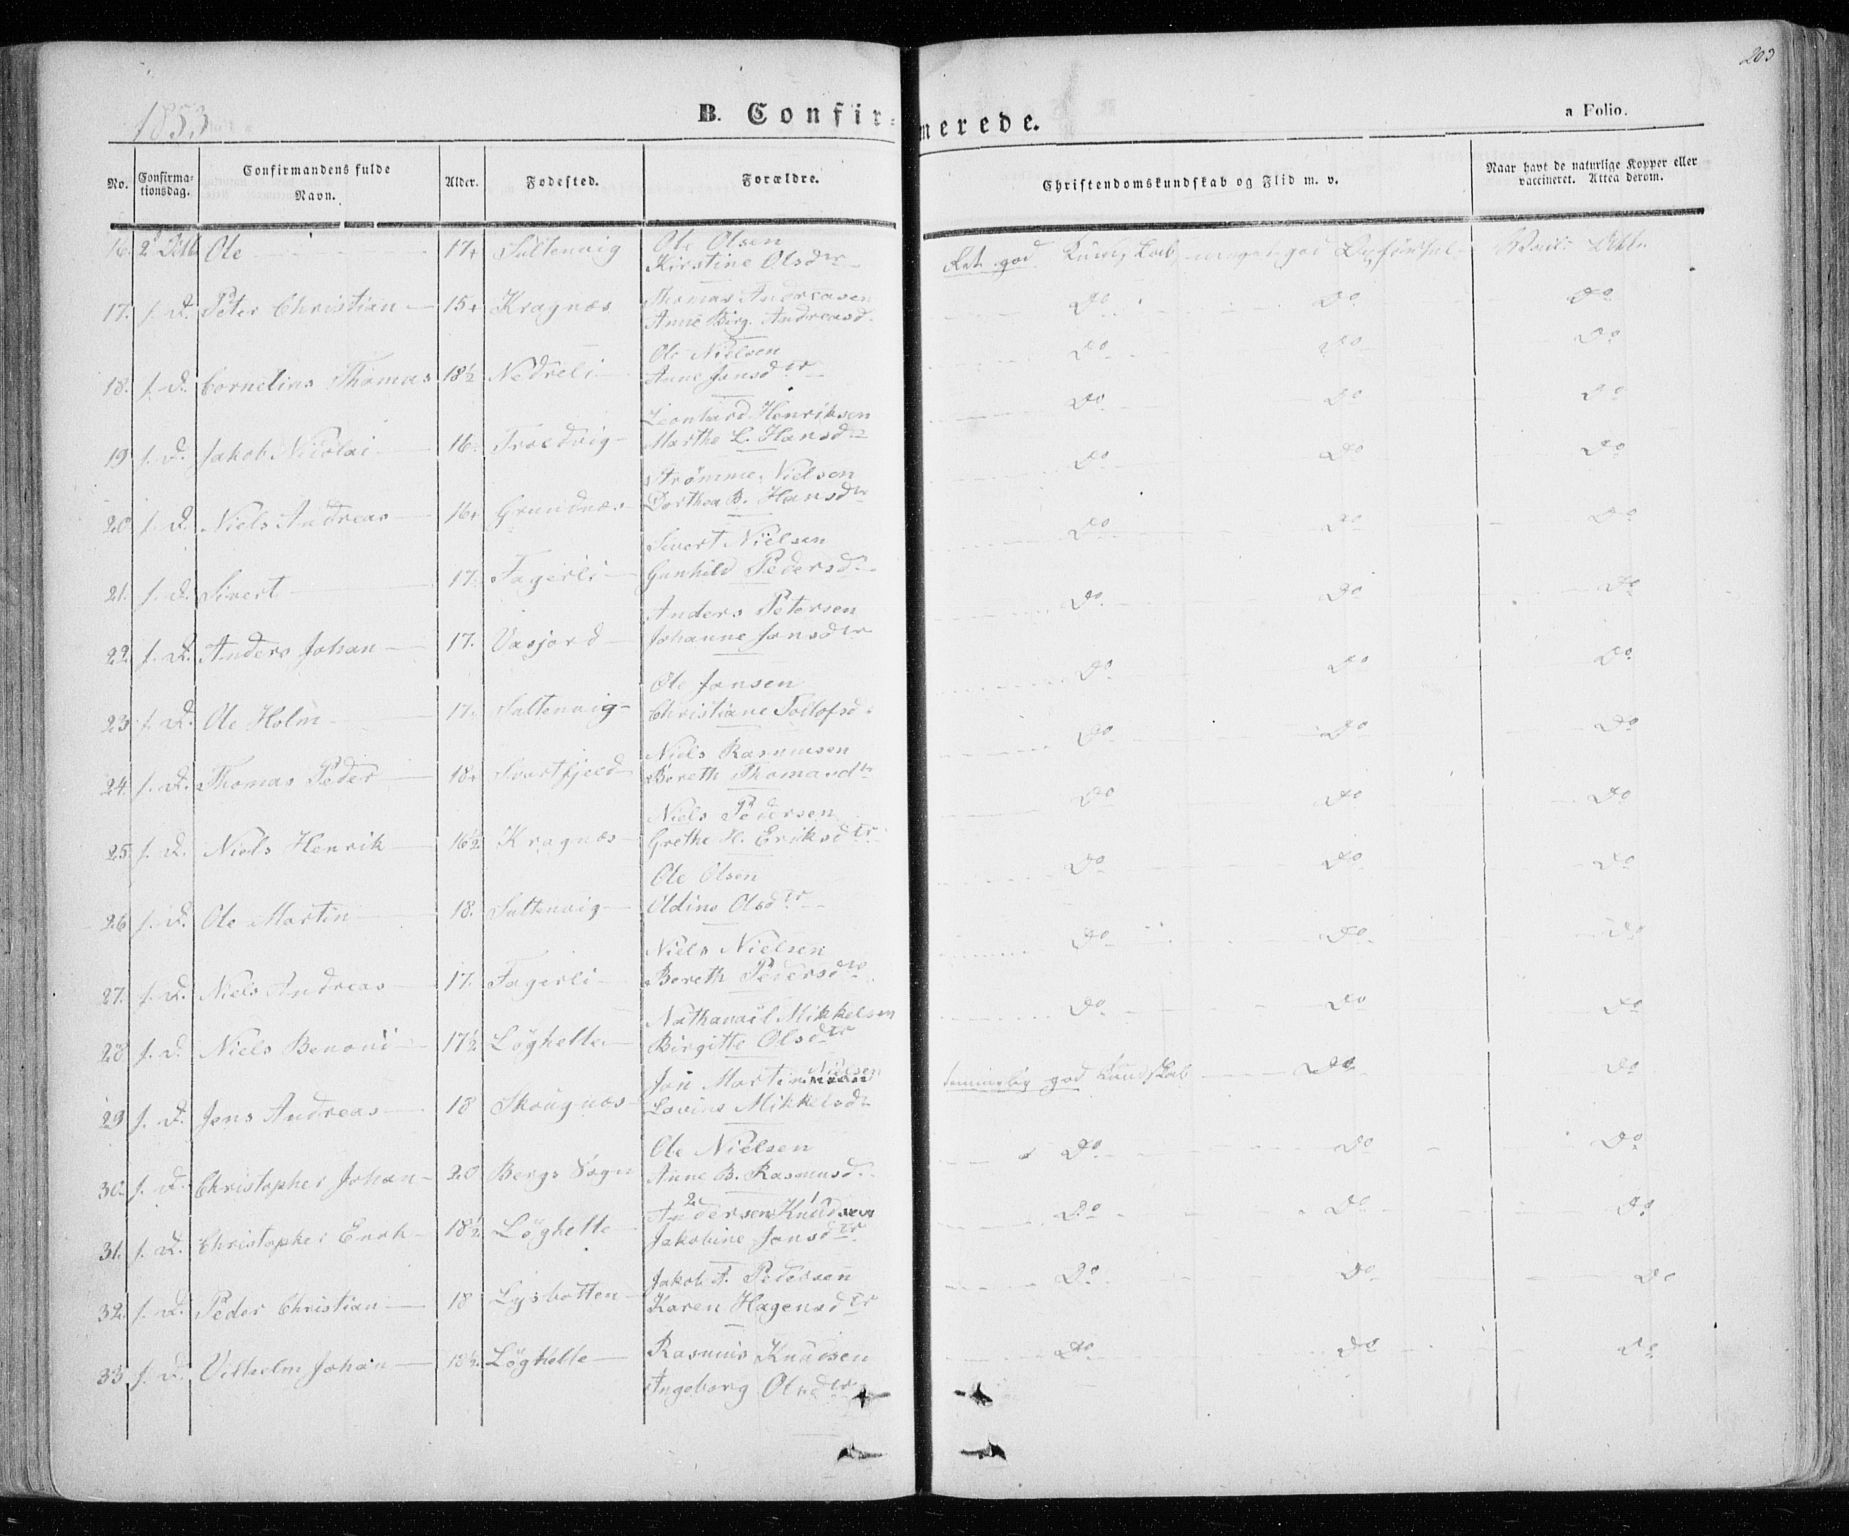 203
1853
B. Confir- merede.
a Folio.
No. Confirma-tionsdag. Confirmandens fulde Navn. Alder. Fødested. Forældre. Christendomskundskab og Flid m. v. Naar havt de naturlige Kopper eller vaccineret. Attea derom.
Ole Olsen
16. Ole 17 Saltenvig Kirstine Olsdtr Ret god Kundskab, meget god
Thomas Andreasen Do Do Do
17. f. D. Peter Christian 15 Kragnæs Anne Birg. Andreasd.
Ole Nielsen Do Do Do
18. f. D. Cornelius Thomas 18½ Nedreli Anne Jensdtr
Leonhard Henriksen Do Do Do
19 f. D. Jakob Nicolai 16 Marthe L. Hansdtr
Strømme Nielsen Do Do Do
20 f. D. Niels Andreas 16 Grundnæs Dorthea B. Hansdtr
Sivert Nielsen Do Do Do
21. f. D. Sivert 17. Fagerli Gunhild Pedersd.
Anders Petersen Do Do Do
22. f. D. Anders Johan 17. Vasjord Johanne Jonsdtr
Ole Jonsen Do Do Do
23 f. D. Ole Holm 17. Saltenvig Christiane
Niels Rasmusen Do Do Do
24. f. D. Thomas Peder 18 Bereth Thomasdtr
Niels Pedersen Do Do Do
25. f. D. Niels Henrik 16½ Kragnæs Grethe H. Eriksdtr
Ole Olsen Do Do Do
26 f. D. Ole Martin 18. Saltenvig Oldine Olsdtr
Niels Nielsen Do Do Do
27. f. D. Niels Andreas 17. Fagerli Bereth Pedersdtr
Nathanael Mikkelsen Do Do Do
28 f. D. Niels Benoni 17½ Løghelle Birgitte Olsdtr
Jon Martin Nielsen temmelig god Kundskab Do Do
29 f. D. Jens Andreas 18 Skougnæs Lovine Mikkelsdtr
Ole Nielsen Do Do Do
30. f. D. Christopher Johan 20 Bergs Sogn Anne B. Rasmusd.
Andersen Knudsen Do Do Do
31. f. D. Christopher Enok 18½ Løghelle Jakobine Jonsdtr
Jakob A. Pedersen Do Do Do
32. f. D. Peder Christian 18 Lysbotten Karen Hagensdtr
33 f. D. Vilhelm Johan 18½ Løghelle Rasmus Knudsen Do Do Do
Ingeborg Olsdtr